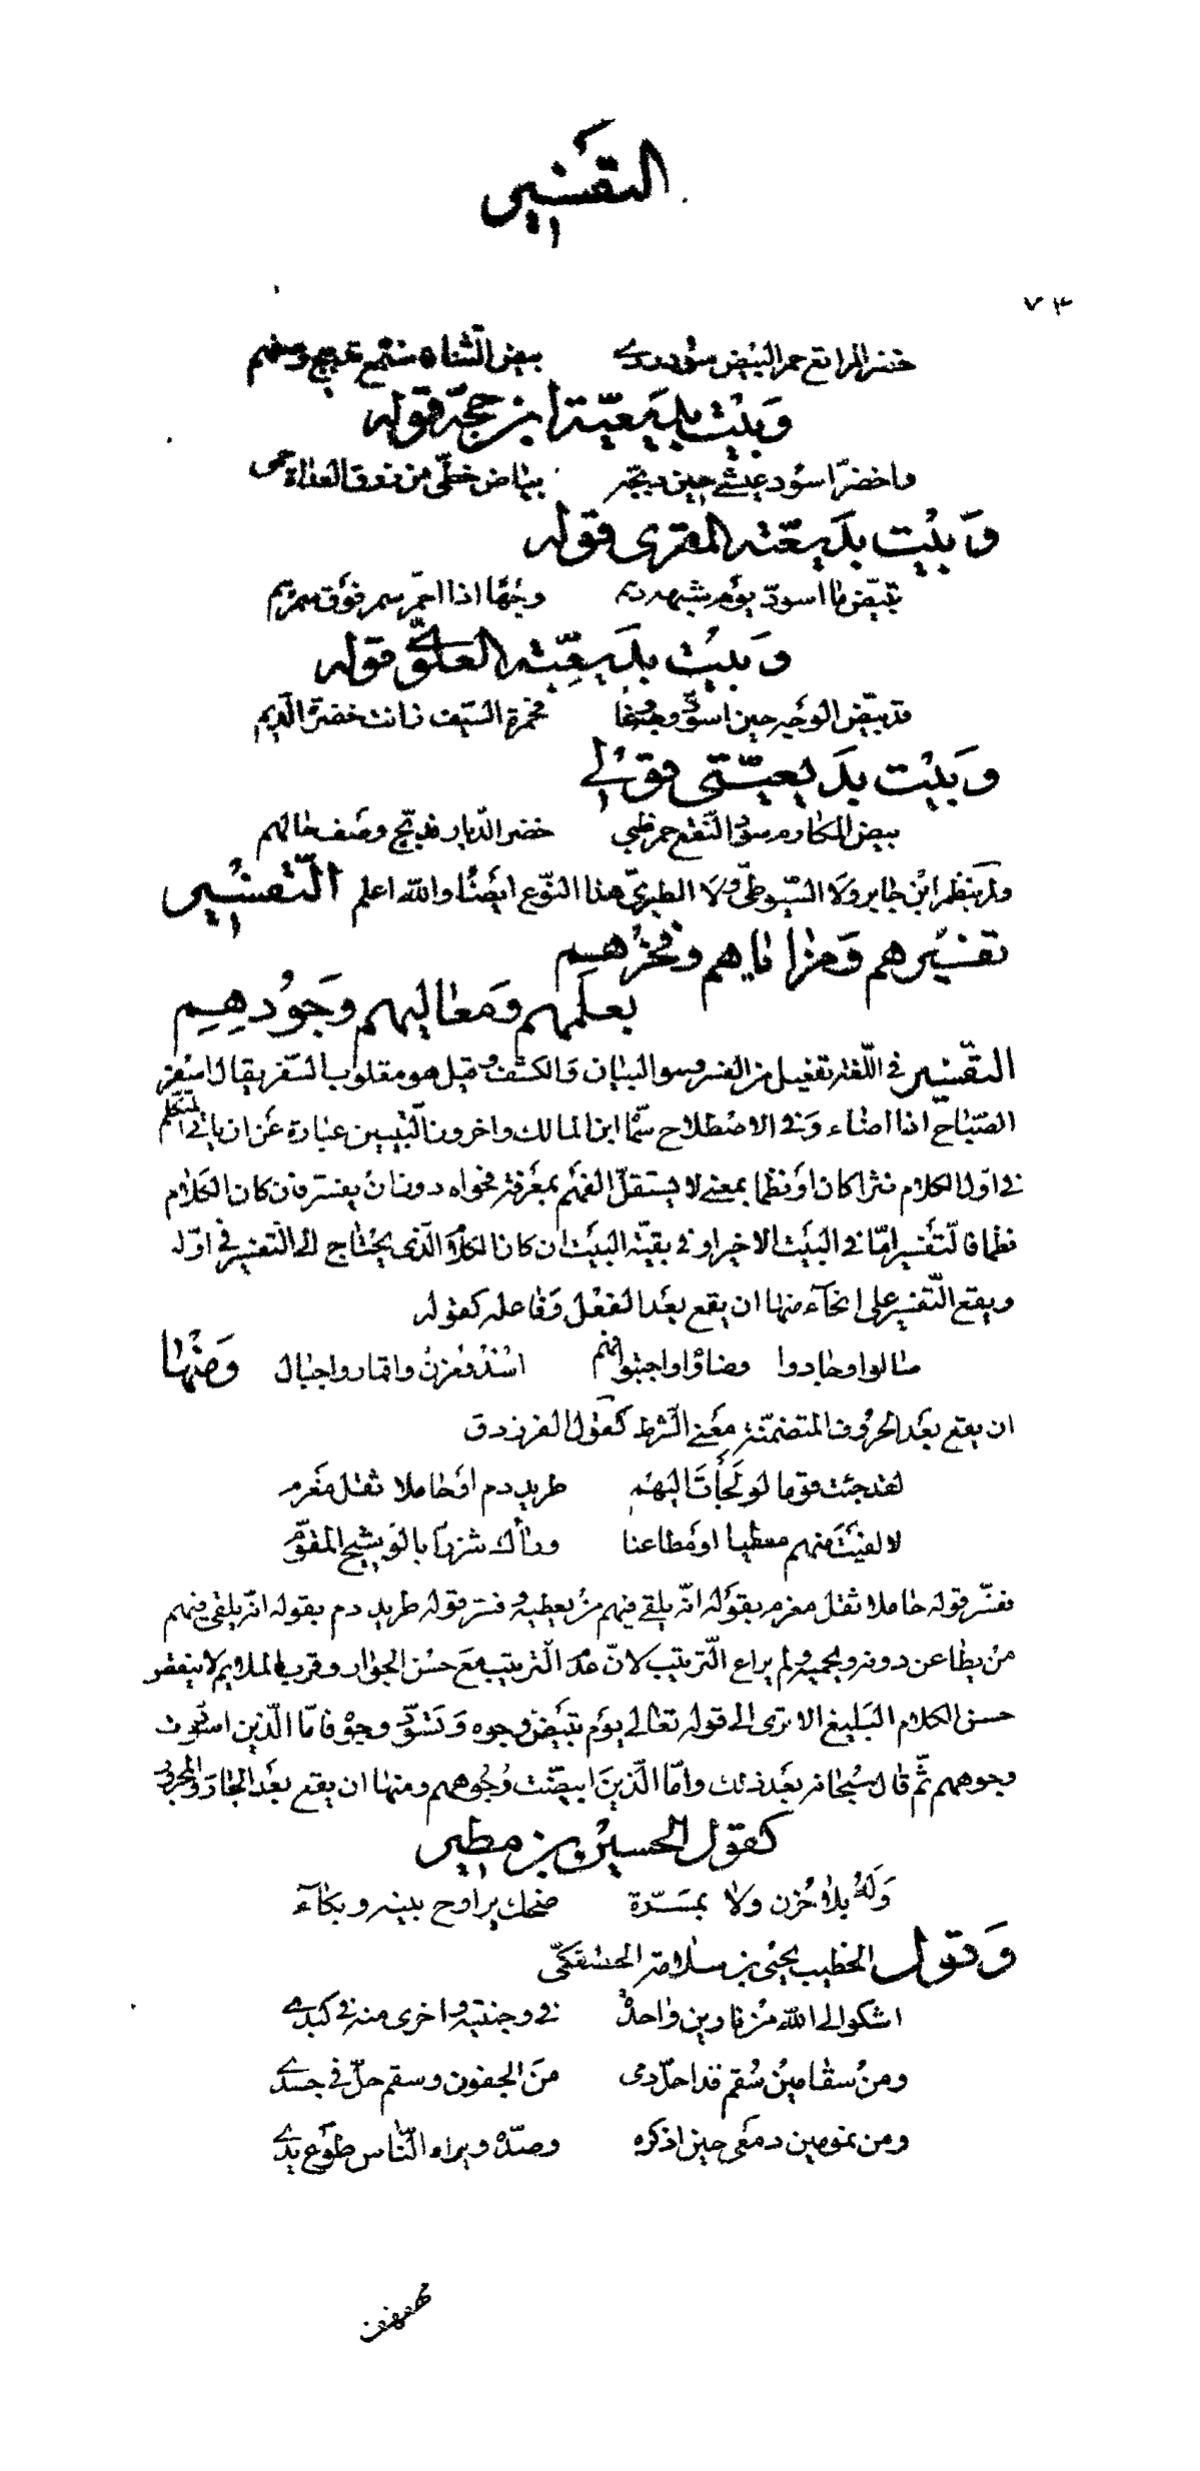 التفسير
٧٣
خضر المرابع حمر البيض سود وغى    بيض الثناء
وبيت بديعية ابن حجة قوله
واخضرّ اسود عيشي حين دبجه    بياض حظّى من زرق العداة حمى
وبيت بديعيته المقرى قوله
تبيّض ما اسودّ يوم شبهه ديم    وجها اذا احمرّ سمر فوق سمرهم
وبيت بديعيّته العلويّ قوله
قد بيّض الوجه حين اسودّ    محمرة السيف زانت خضرة الديم
وبيت بديعيّتي قولي
بيض المكارم سود النّقع حمر ظبي    خضر الدّيار فدبّج وصف حالهم
ولم ينظم ابن جابر ولا السّيوطيّ ولا الطبريّ هذا النوّع ايضا والله اعلم التّفسير
تفسيرهم ومزاياهم وفخرهم
بعلمهم ومعاليهم وجودهم
التفّسير في اللّغة تفعيل من الفسر وهو البيان والكشف وقيل هو مقلوب السّفر يقال اسفر
الصّباح اذا اضاء وفي الاصطلاح سمّاه ابن مالك واخرون التّبيين عبارة عن ان ياتي المتكلّم
في اوّل الكلام نثرا كان او نظما بمعنى لا يستقلّ الفهم بمعرفة فحواه دون ان يفسر فان كان الكلام
نظما فالتّفسير امّا في البيت الاخير او في بقيّة البيت ان كان الكلام الّذى يحتاج الى التّفسير في اوّله
ويقع التّفسير على انحآء منها ان يقع بعد الفعل وفاعله كقوله
صالوا وجادوا وضاؤا واحتبوا فهم    اسْد ومزن واقمار واجبال    ومنها
ان يقع بعد الحروف المتضمّنة معنى الشّرط كقول الفرزدق
لقد جئت قوما لو لجأت اليهم    طريد دم او حاملا ثقل مغرم
لالفيت منهم معطيا او مطاعنا    وراك شزرًا بالوشيج المقوّم
ففسّر قوله حاملا ثقل مغرم بقوله انّه يلقى فيهم من يعطيه وفسّر قوله طريد دم بقوله انّه يلقى فيهم
من يطاعن دونه ويحميه ولم يراع التّرتيب لانّ عدم التّرتيب مع حسن الجوار وقرب الملايم لا ينقص
حسن الكلام البليغ الا ترى الى قوله تعالى يوم تبيضّ وجوه وتسْودّ وجوه فامّا الّذين اسودّت
وجوههم ثمّ قال سبحانه بعد ذلك وامّا الّذين ابيضّت وجوههم ومنها ان يقع بعد الجار والمجرور
كقول الحسين بن مطير
وله بلا حُزن ولا بمسَرّة    ضحك يراوح بينه وبكآء
وقول الخطيب يحيى بن سلامة الحصفكي
اشكوا الى الله من نارين واحدة    في وجنتيه واخرى منه في كبدي
ومن سقامين سُقم قد احلّ دمى    من الجفون وسقم حلّ في جسدي
ومن نمومين دمعى حين اذكره    وصدّه ويراه النّاس طوع يدي